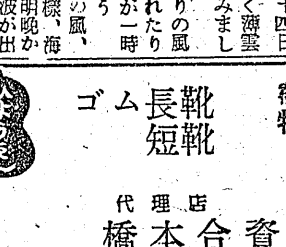 十四日
く薄雲
みまし
りの風
れたり
が一時
う
の風、
樣、海
明晩か
波が出
ゴム長靴
短靴
代理店
橋本合資